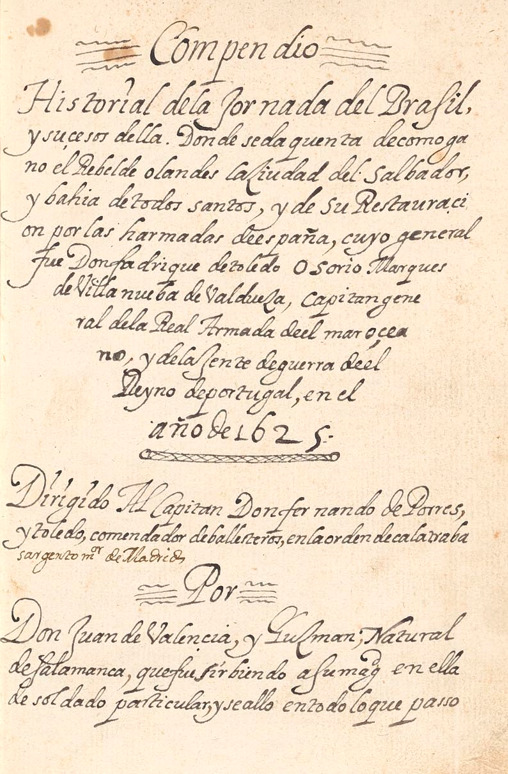 Compendio
Historial dela Jornada del Brasil,
y suçesos della. Donde sedaquenta decomo ga
no el Rebelde olandes laÇiudad del Salbador,
y bahia detodos santos, y de su Restauraci
on por las harmadas deespaña, cuyo general
fue Donfadrique detoledo Osorio Marques
de Villanueba de Valdueza, Capitan gene
ral dela Real Armada deel mar oçea
no, y delaJente deguerra deel
Reyno deportugal, en el
año de 1625.
Dirigido Al Capitan Donfernando de Porres,
y toledo, comendador deballesteros, enlaorden decalatraba
sargento mor de Madrid
Por
Don Juan de Valencia, y Guzman; Natural
de salamanca, quefue sirbiendo a sumagd en ella
de soldado particular, y seallo entodo loque passo